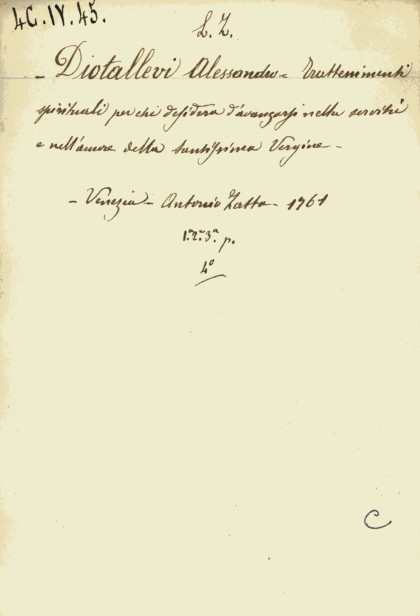 4C.IV.45.
L. Z.
- Diotallevi Alessandro - Trattenimenti
spirituali per chi desidera d'avanzarsi nella servitù
e nell'amore della Santissima Vergine -
- Venezia - Antonio Zatta - 1761
1ª 2ª 3ª p.
4º
C